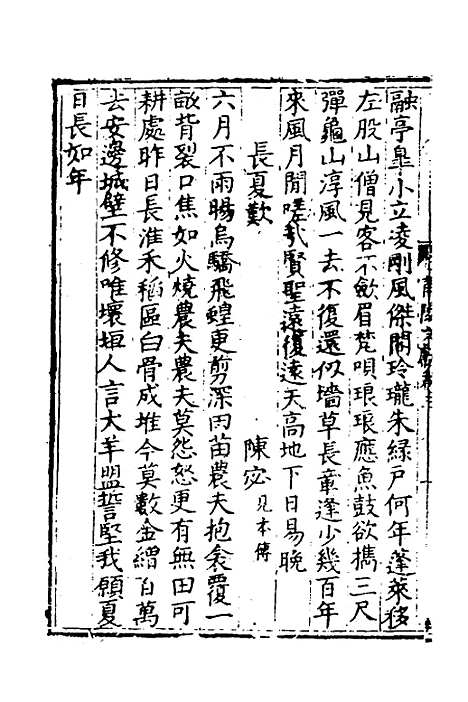 融亭皐小立凌剛風傑閣玲瓏朱綠戸何年蓬萊移
左股山僧見客不歛眉梵唄琅琅應魚鼓欲擕三尺
彈龜山淳風一去不復還似墻草長章逢少幾百年
來風月閒嗟哉賢聖遠復遠天高地下日易晩
長夏歎 陳宓見本傳
六月不雨暘烏驕飛蝗更剪深田苗農夫抱衾覆一
畝背裂口焦如火燒農夫農夫莫怨怒更有無田可
耕處昨日長淮禾稻區白骨成堆今莫數金繒百萬
去安邊城壁不修唯壞垣人言犬羊盟誓堅我願夏
日長如年